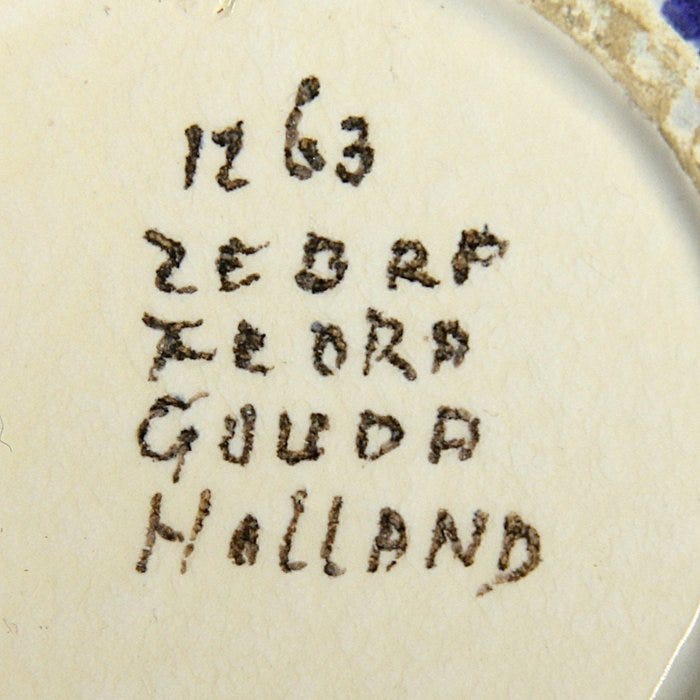 1263
ZEBRA
FLORA
GOUDA
HOLLAND